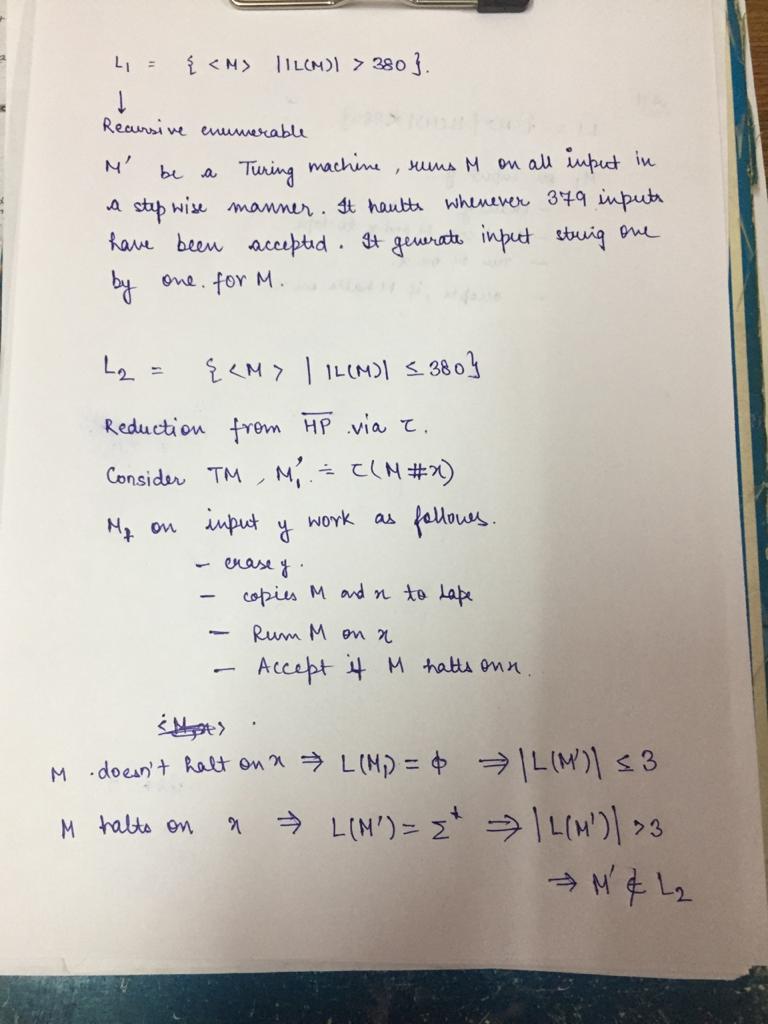 L₁ = { <M> | |L(M)| > 380 }.
↓
Recursive enumerable
M' be a Turing machine, runs M on all input in
a step wise manner. It haults whenever 379 inputs
have been accepted. It generate input string one
by one. for M.
L₂ = { <M> | |L(M)| ≤ 380 }
Reduction from H̅P̅ via τ.
Consider TM, M₁' = τ(M#x)
M₁ on input y work as follows.
- erase y.
- copies M and x to tape
- Run M on x
- Accept if M halts on x.
M doesn't halt on x ⇒ L(M₁) = ϕ ⇒ |L(M')| ≤ 3
M halts on x ⇒ L(M') = Σ* ⇒ |L(M')| > 3
⇒ M' ∉ L₂